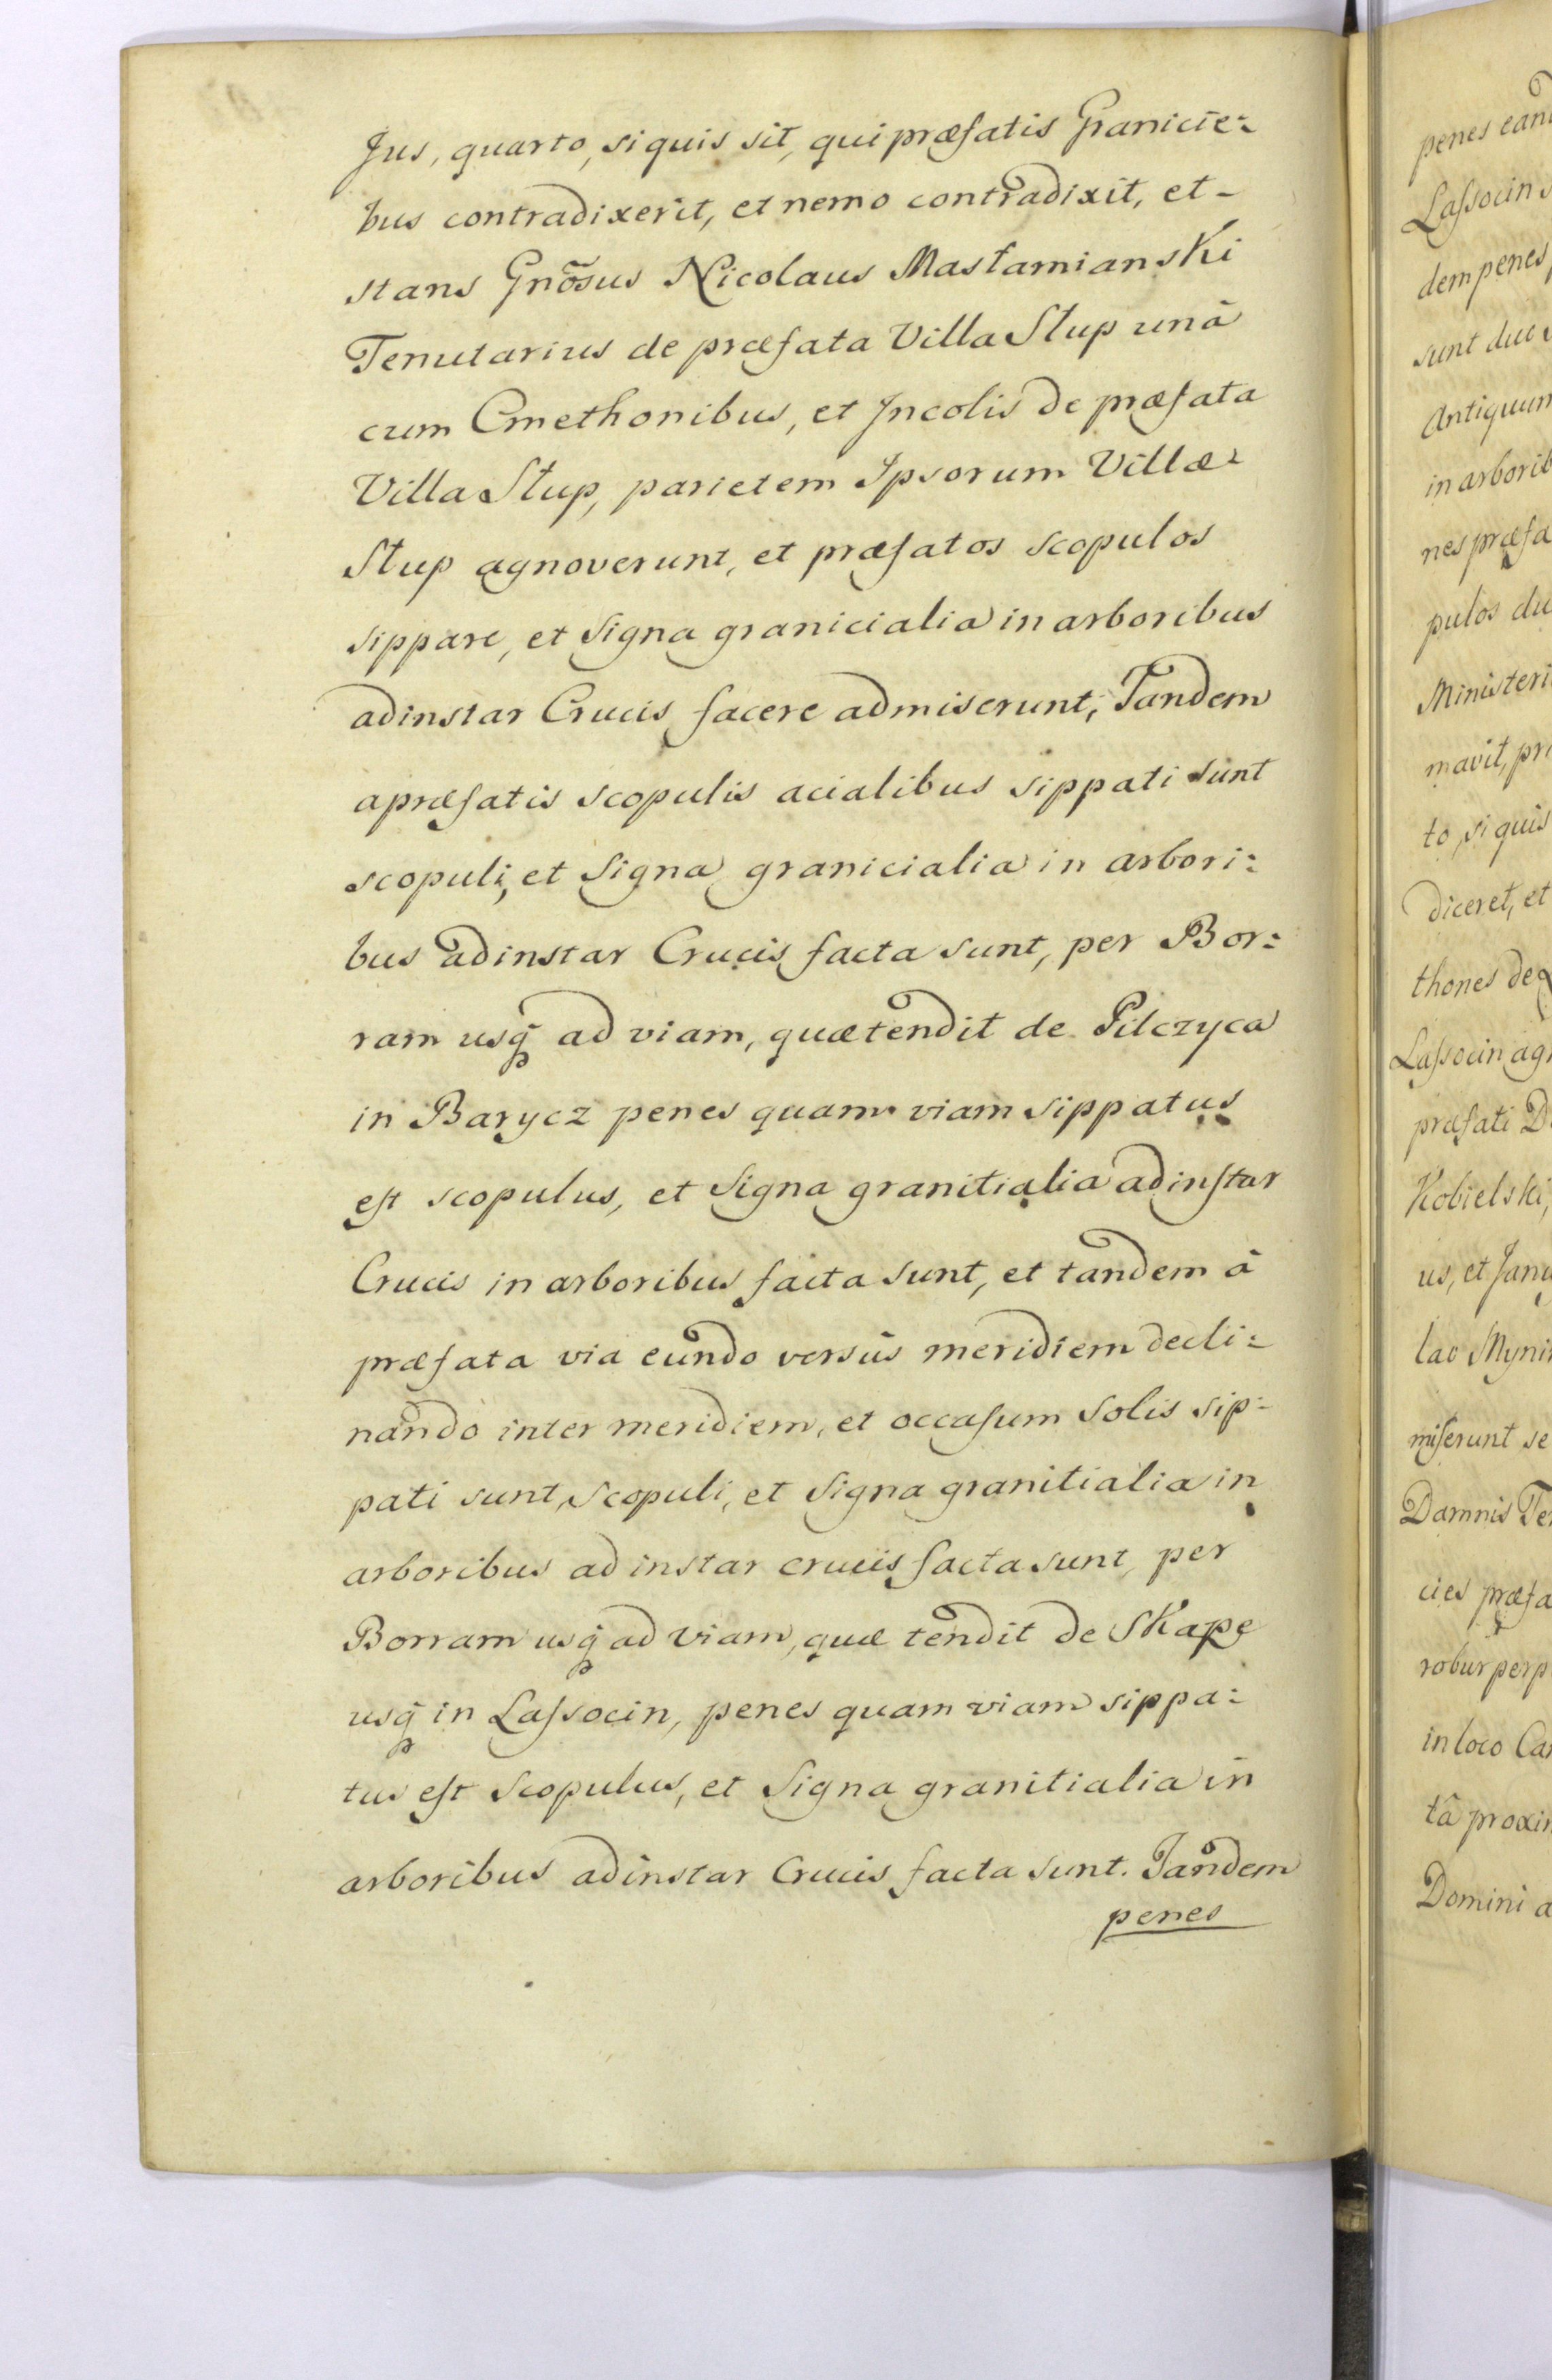 Jus, quarto, si quis sit, qui præfatis Granicie:
bus contradixerit, et nemo contradixit, et-
stans Gnõsus Nicolaus Masłamianski
Tenutarius de præfata Villa Słup unâ
cum Cmethonibus, et Jncolis de præfata
Villa Słup, parietem Ipsorum Villæ:
Słup agnoverunt, et præfatos scopulos
sippare, et Signa granicialia in arboribus
adinstar Crucis facere admiserunt, Tandem
a præfatis scopulis acialibus sippati sunt
scopuli, et Signa granicialia in arbori:
bus adinstar Crucis facta sunt, per Bor:
ram usq̃ ad viam, quæ tendit de Pilczyca
in Barycz penes quam viam sippatus
est scopulus, et Signa granitialia adinstar
Crucis in arboribus facta sunt, et tandem â
præfata via eundo versûs meridiem decli:
nando inter meridiem, et occasum Solis sip:
pati sunt, Scopuli, et Signa granitialia in
arboribus ad instar crucis facta sunt, per
Borram usq̃ ad viam, quæ tendit de Skape
usq̃ in Lassocin, penes quam viam sippa:
tus est Scopulus, et Signa granitialia in
arboribus adinstar Crucis facta sunt. Tandem
penes
penes
Lassocin
dem penes
sunt
nes
pulos
to, si quis
diceret, et
thones de
Lassocin
præfati
Kobielski,
us, et
miserunt se
Damnis
cies
robur
in loco
tâ
Domini